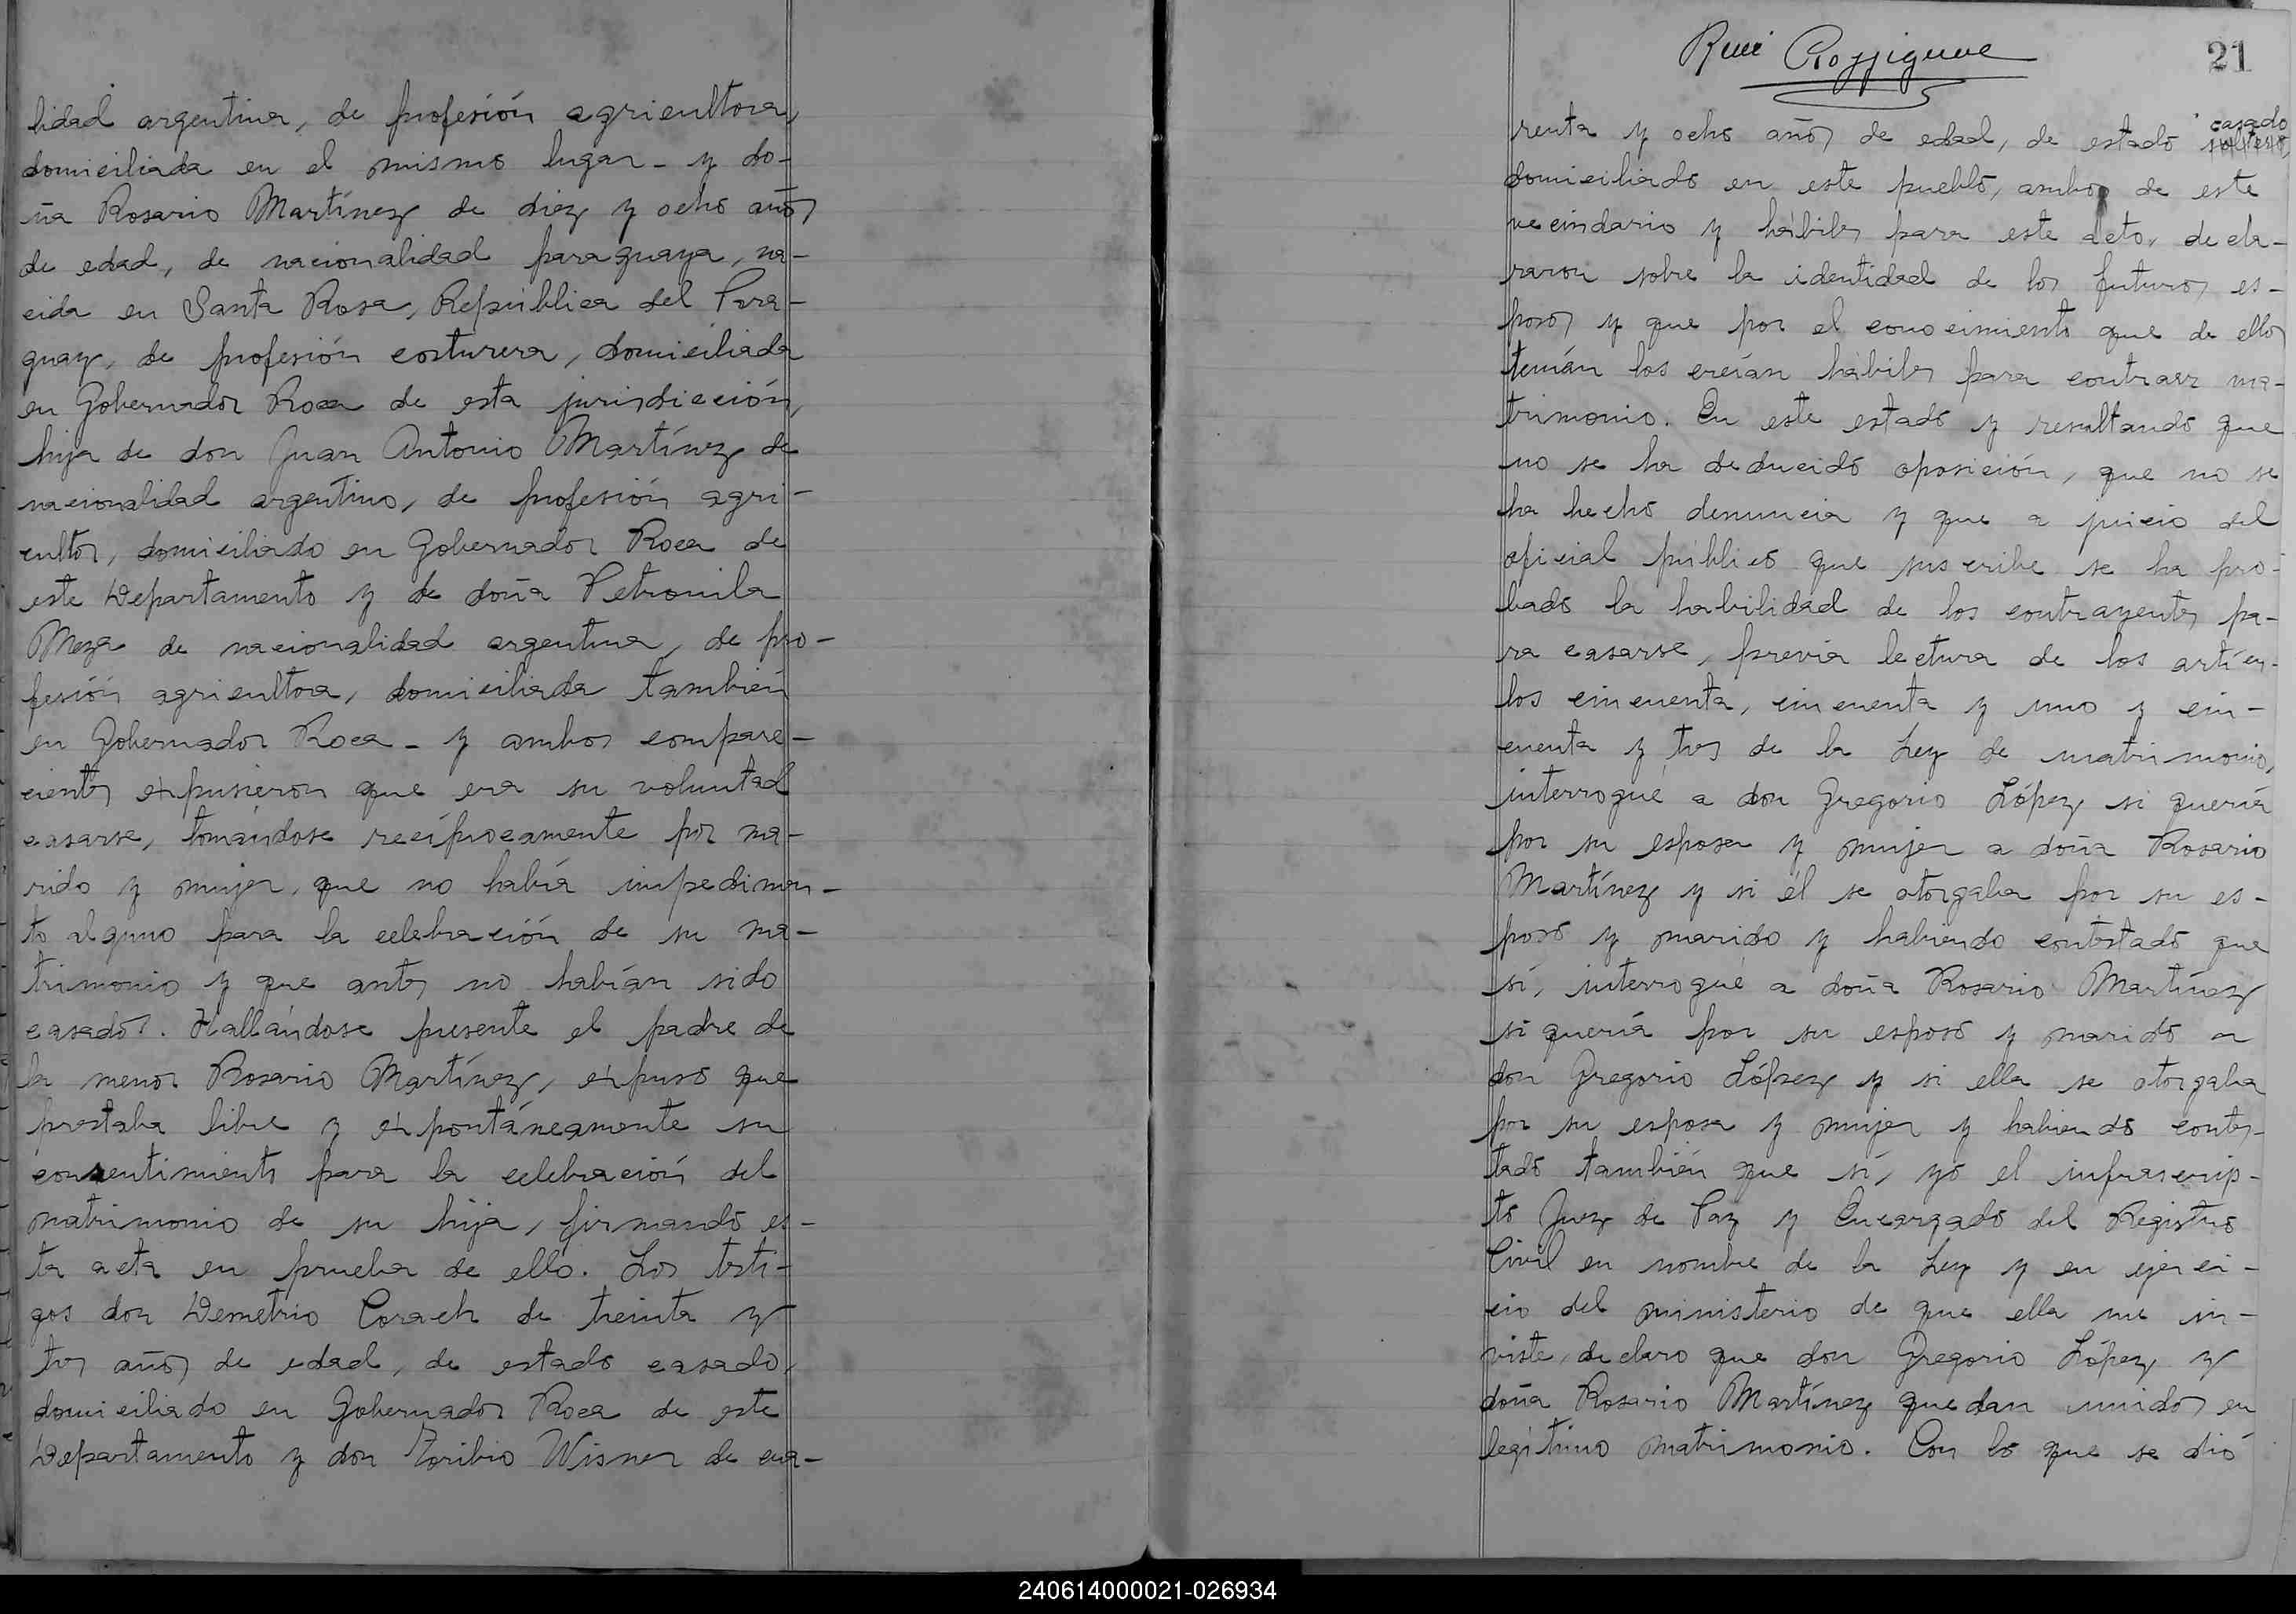 lidad argentina, de profesión agricultora,
domiciliada en el mismo lugar - y do-
ña Rosario Martínez de diez y ocho años
de edad, de nacionalidad paraguaya, na-
cida en Santa Rosa, República del Para-
guay, de profesión costurera, domiciliada
en Gobernador Roca de esta jurisdicción,
hija de don Juan Antonio Martínez de
nacionalidad argentino, de profesión agri-
cultor, domiciliado en Gobernador Roca de
este Departamento y de doña Petronila
Meza de nacionalidad argentina, de pro-
fesión agricultora, domiciliada también
en Gobernador Roca - y ambos compare-
cientes expusieron que era su voluntad
casarse, tomándose recíprocamente por ma-
rido y mujer, que no había impedimen-
to alguno para la celebración de su ma-
trimonio y que antes no habían sido
casados. Hallándose presente el padre de
la menor Rosario Martínez, expuso que
prestaba libre y expontáneamente su
consentimiento para la celebración del
matrimonio de su hija, firmando es-
ta acta en prueba de ello. Los testi-
gos don Demetrio Corach de treinta y
tres años de edad, de estado casado,
domiciliado en Gobernador Roca de este
Departamento y don Toribio Wisner de cua-
21
casado
renta y ocho años de edad, de estado soltero,
domiciliado en este pueblo, ambos de este
vecindario y hábiles para este acto, decla-
raron sobre la identidad de los futuros es-
posos y que por el conocimiento que de ellos
tenían los creían hábiles para contraer ma-
trimonio. En este estado y resultando que
no se ha deducido oposición, que no se
ha hecho denuncia y que a juicio del
oficial público que suscribe se ha pro-
bado la habilidad de los contrayentes pa-
ra casarse, previa lectura de los artícu-
los cincuenta, cincuenta y uno y cin-
cuenta y tres de la Ley de matrimonio,
interrogué a don Gregorio López si quería
por su esposa y mujer a doña Rosario
Martínez y si él se otorgaba por su es-
poso y marido y habiendo contestado que
sí, interrogué a doña Rosario Martínez
si quería por su esposo y marido a
don Gregorio López y si ella se otorgaba
por su esposa y mujer y habiendo contes-
tado también que sí, yo el infrascrip-
to Juez de Paz y Encargado del Registro
Civil en nombre de la Ley y en ejerci-
cio del ministerio de que ella me in-
viste, declaro que don Gregorio López y
doña Rosario Martínez quedan unidos en
legítimo matrimonio. Con lo que se dió
240614000021-026934